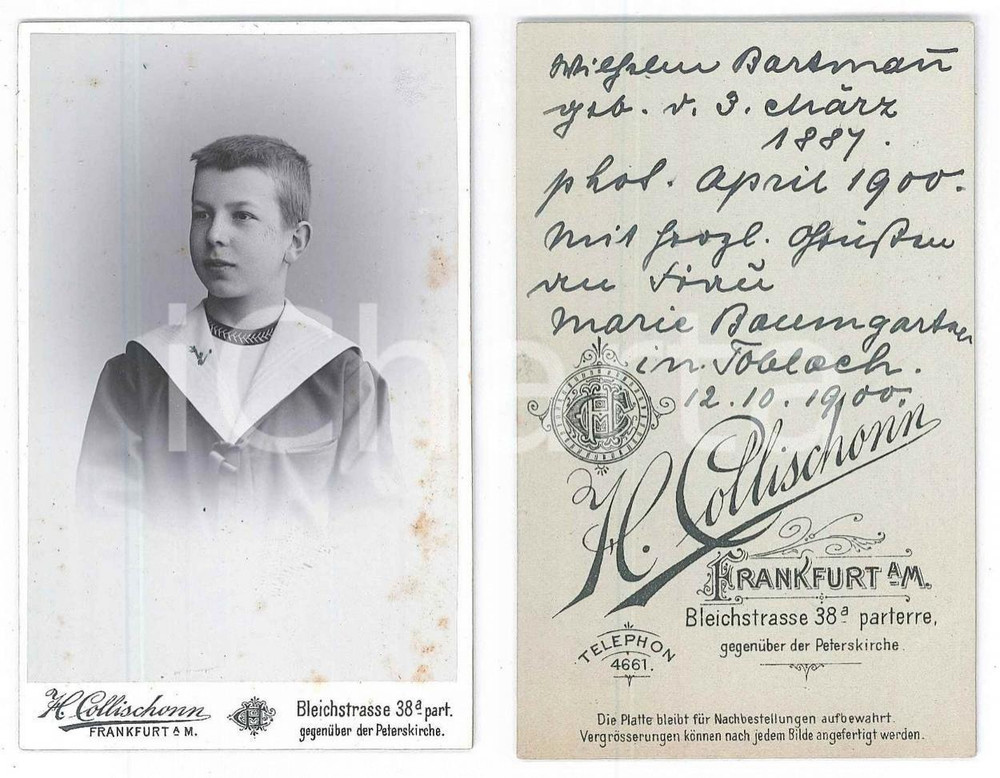 H. Collischonn
FRANKFURT A M.
CH
Bleichstrasse 38ª part.
gegenüber der Peterskirche.
Wilhelm Bartmañ
geb. d. 3. März
1887.
phot. April 1900.
Mit herzl. Grüßen
an Frau
Marie Baumgartner
in Toblach.
12.10.1900.
H. Collischonn
FRANKFURT A/M.
Bleichstrasse 38ª parterre,
gegenüber der Peterskirche.
TELEPHON
4661.
Die Platte bleibt für Nachbestellungen aufbewahrt.
Vergrösserungen können nach jedem Bilde angefertigt werden.